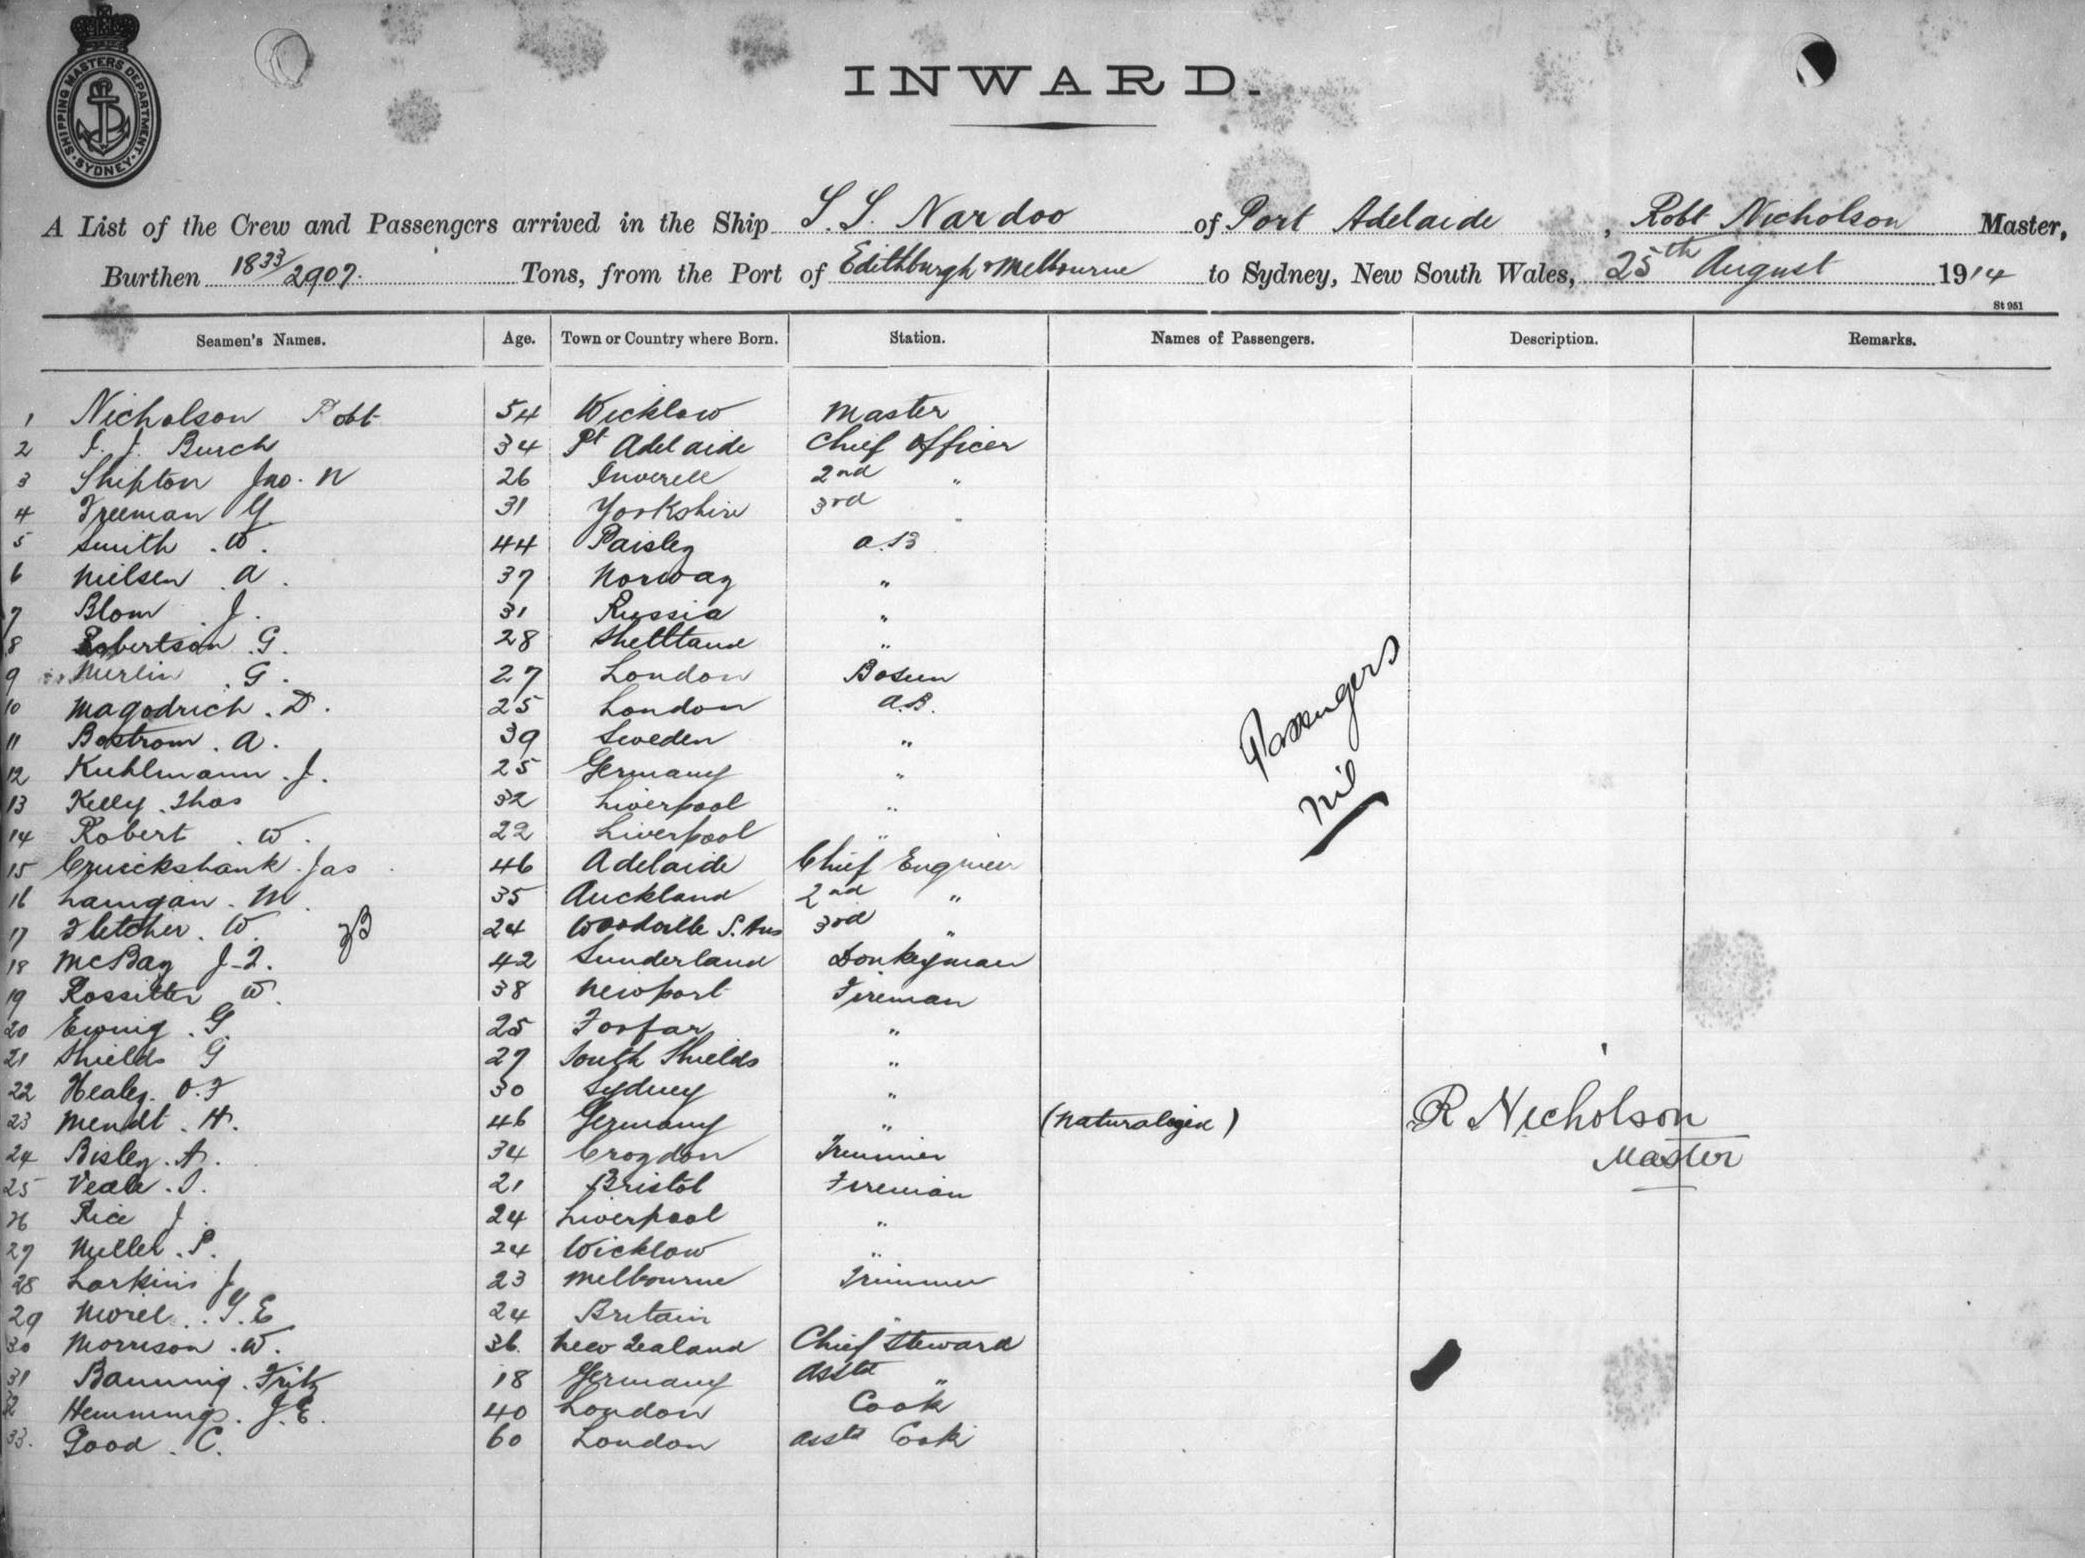 SHIPPING MASTERS DEPARTMENT · SYDNEY ·
INWARD.
A List of the Crew and Passengers arrived in the Ship S. S. Nardoo of Port Adelaide, Robt Nicholson Master,
Burthen 1833/2907. Tons, from the Port of Edithburgh & Melbourne to Sydney, New South Wales, 25th August 1914
St 951
Seamen's Names. Age. Town or Country where Born. Station. Names of Passengers. Description. Remarks.
1 Nicholson Robt 54 Wicklow Master
2 J. J. Burch 34 Pt Adelaide Chief Officer
3 Shipton Jno. N 26 Inverell 2nd "
4 Freeman G 31 Yorkshire 3rd "
5 Smith . W. 44 Paisley A.B
6 Nielsen . A . 37 Norway "
7 Blom J. 31 Russia "
8 Robertson . G. 28 Shetland "
9 Merlin . G . 27 London Bosun
10 Magodrich . D . 25 London A.B.
11 Bostrom . A . 39 Sweden "
12 Kuhlmann . J. 25 Germany "
13 Kelly . Thos 32 Liverpool "
14 Robert . W . 22 Liverpool "
Passengers
Nil
15 Cruickshank . Jas 46 Adelaide Chief Engineer
16 Lanigan . M . 35 Auckland 2nd "
17 Fletcher . W. 24 Woodville S. Aus 3rd "
18 McBay J. 42 Sunderland Donkeyman
19 Rossitter W. 38 Newport Fireman
20 Ewing . G. 25 Forfar "
21 Shields G 27 South Shields "
22 Healey . O. F 30 Sydney "
23 Mendt . H. 46 Germany " (Naturalized) R Nicholson
24 Bisley . A. 34 Croydon Trimmer Master
25 Veale . 21 Bristol Fireman
26 Rice J . 24 Liverpool "
27 Miller . P. 24 Wicklow "
28 Larkins J 23 Melbourne Trimmer
29 Morel . . E 24 Britain "
30 Morrison . W. 36. New Zealand Chief Steward
31 Banning . Fritz 18 Germany Asstt "
32 Hemmings . J. E. 40 London Cook
33. Good . C. 60 London Asstt Cook